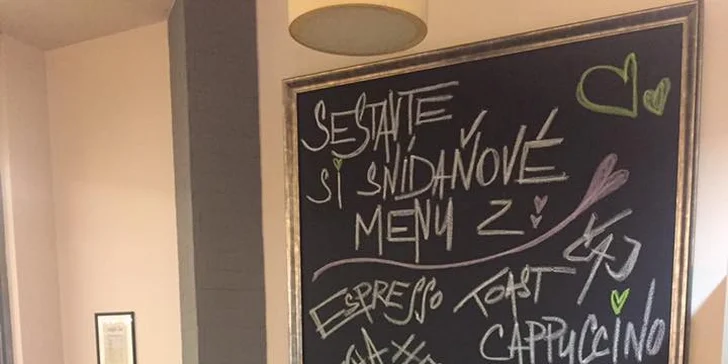 SESTAVTE
SI SNÍDAŇOVÉ
MENU Z :
ČAJ
ESPRESSO TOAST
CAPPUCCINO